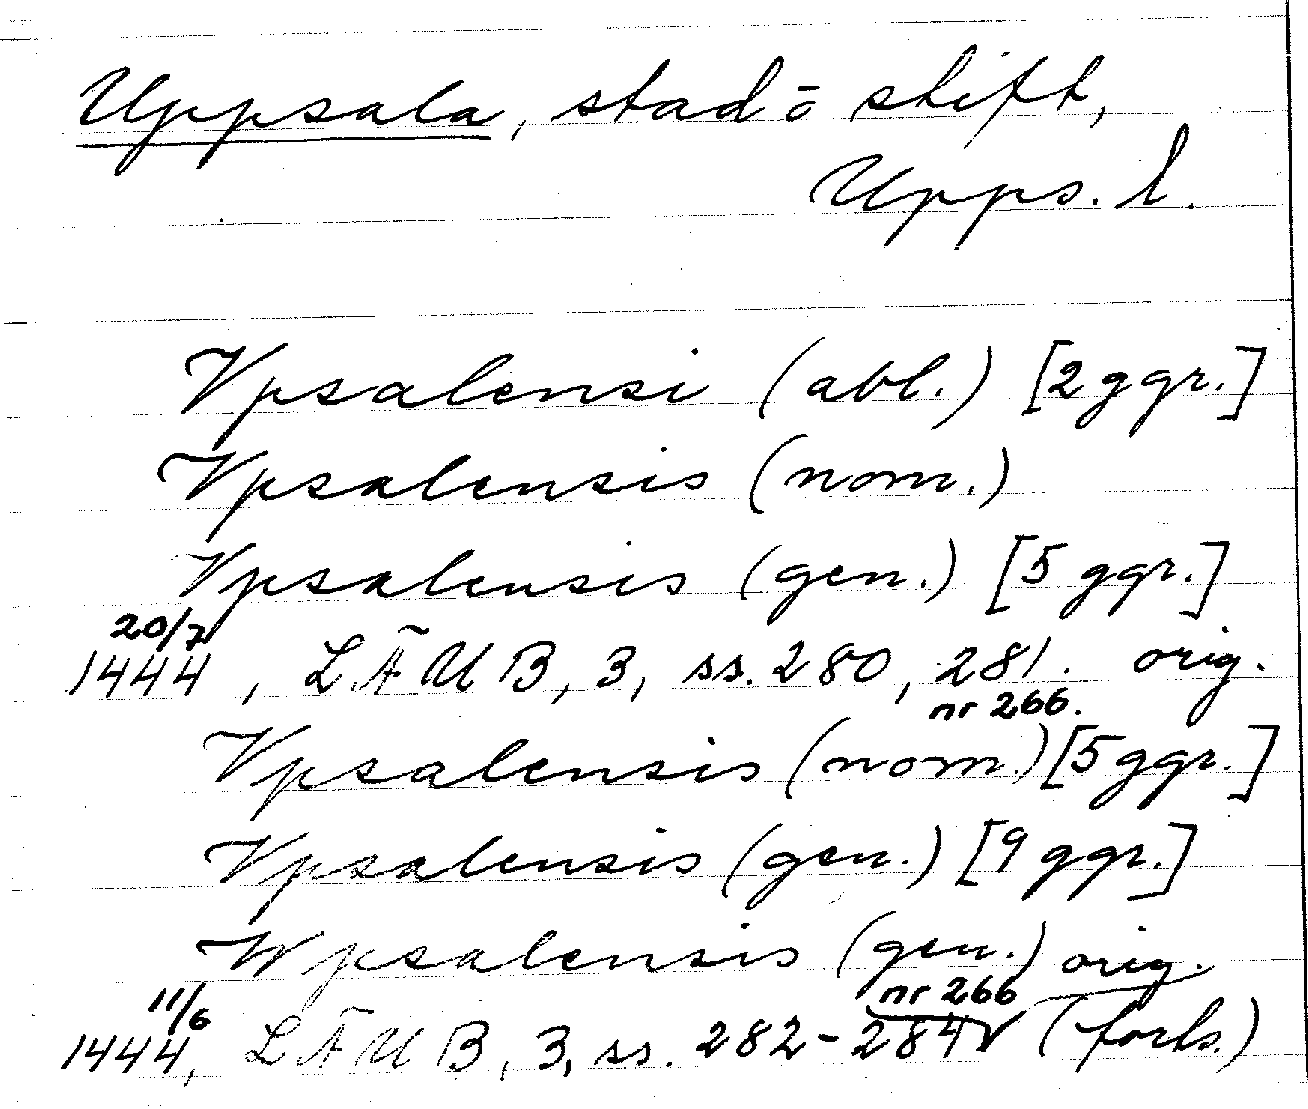 Uppsala, stad o stift,
Upps. l.
Vpsalensi (abl.) [2 ggr.]
Vpsalensis (nom.)
Vpsalensis (gen.) [5 ggr.]
20/7
1444, LÄUB, 3, ss. 280, 281. orig.
nr 266.
Vpsalensis (nom.) [5 ggr.]
Vpsalensis (gen.) [9 ggr.]
Wpsalensis (gen.) orig.
11/6 nr 266
1444, LÄUB, 3, ss. 282-284 (forts.)